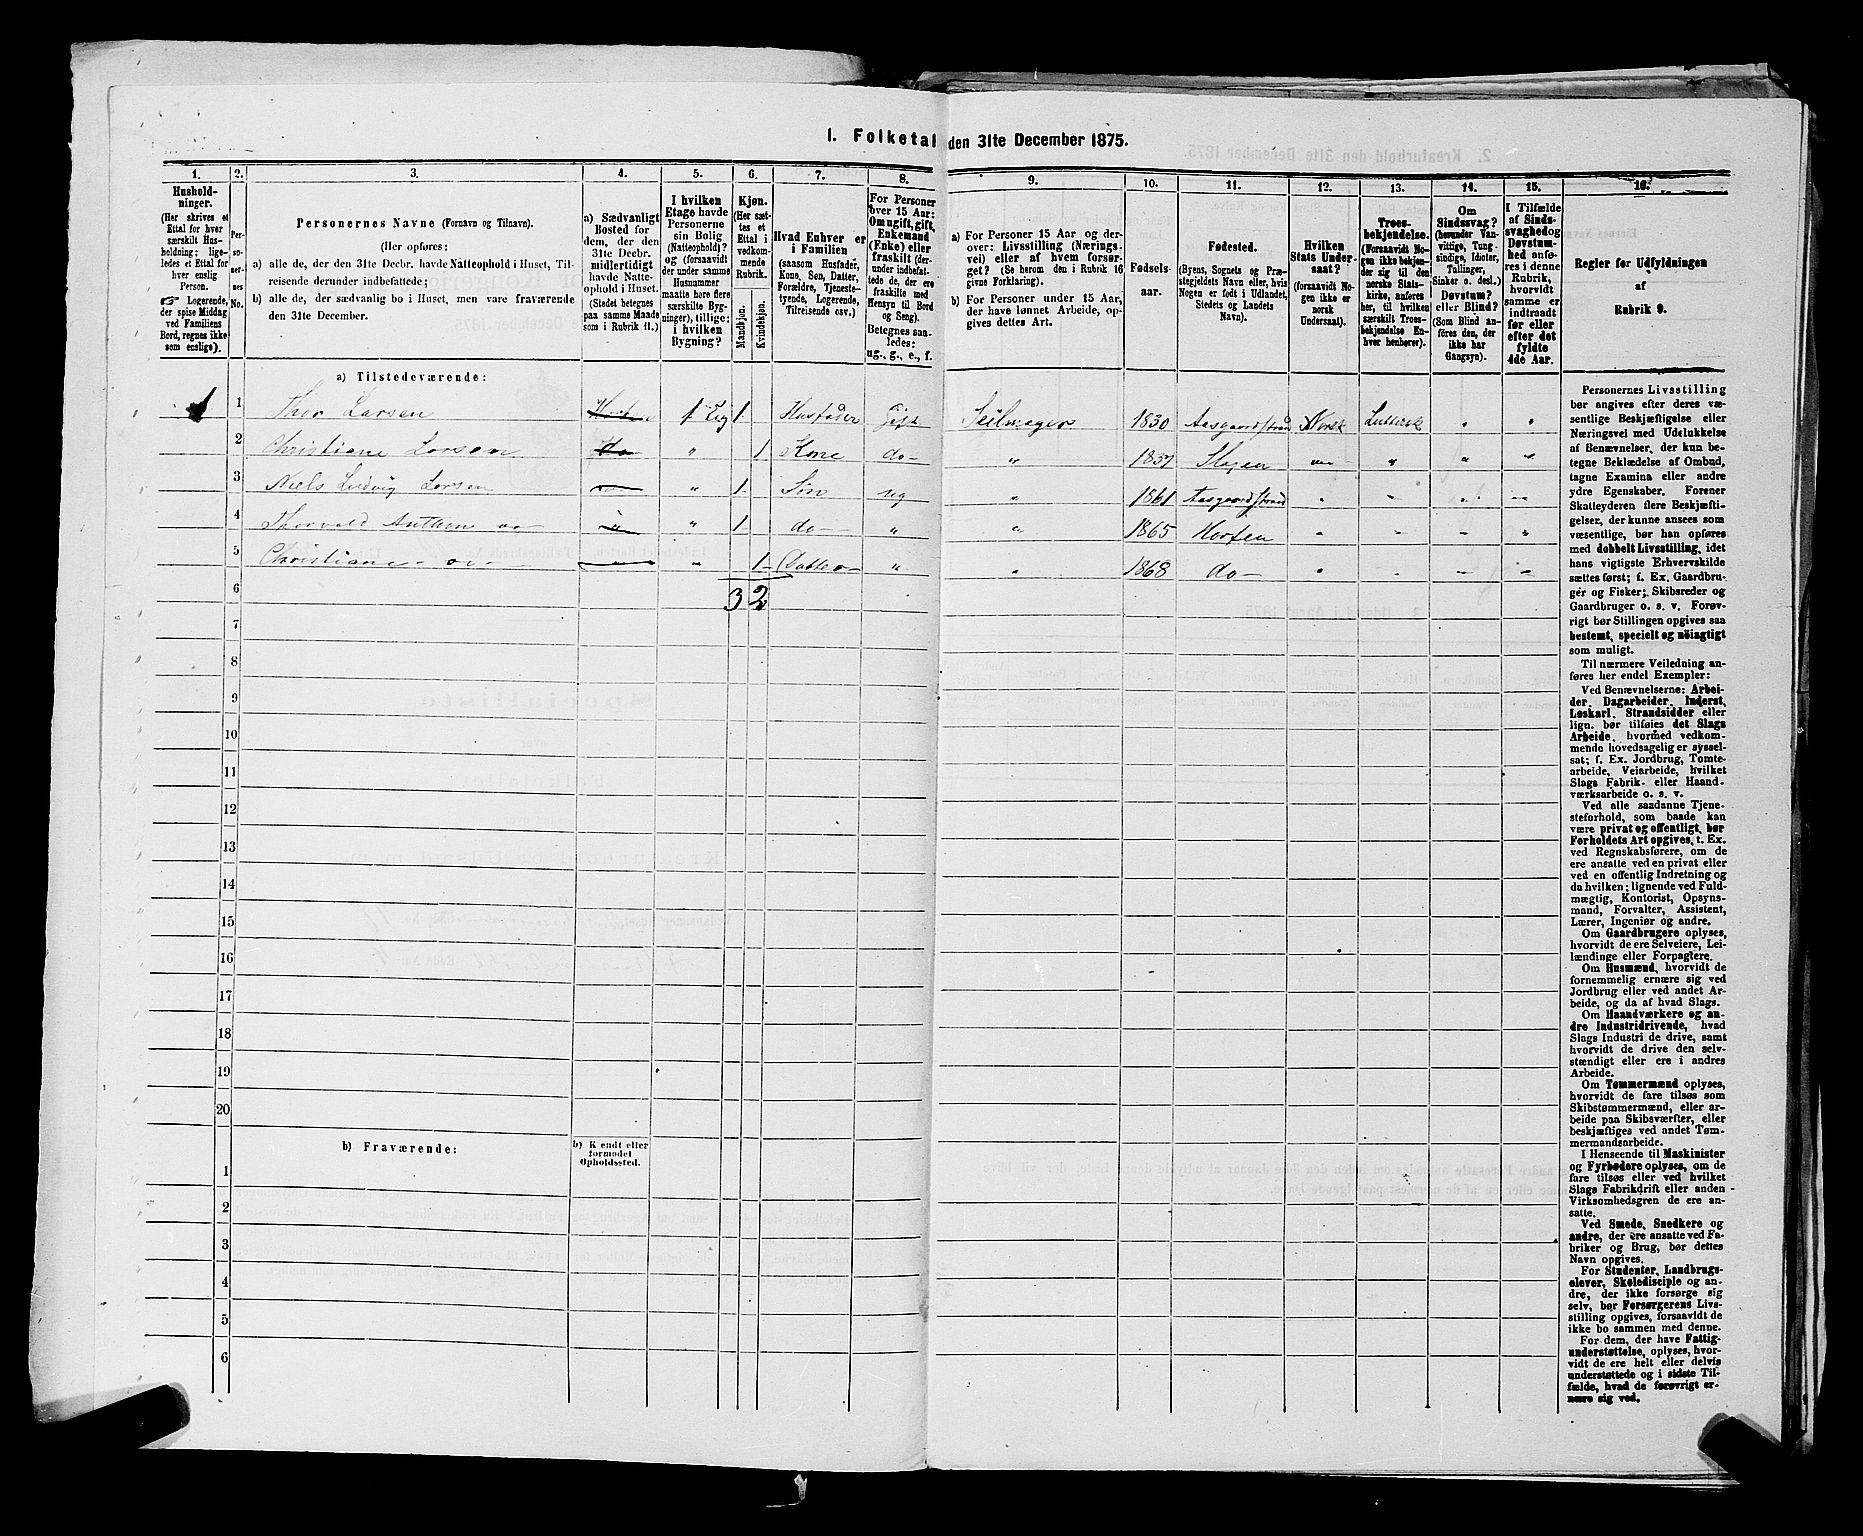 1. Folketal den 31te December 1875.
1. 2. 3. 4. 5. 6. 7. 8. 9. 10. 11. 12. 13. 14. 15. 16.
Hushold-
ninger.
(Her skrives et
Ettal for hver
særskilt Hus-
holdning; lige-
ledes et Ettal for
hver enslig
Person.
☞ Logerende,
der spise Middag
ved Familiens
Bord, regnes ikke
som enslige).
Per-
so-
ner-
nes
No.
Personernes Navne (Fornavn og Tilnavn).
(Her opføres:
a) alle de, der den 31te Decbr. havde Natteophold i Huset, Til-
reisende derunder indbefattede;
b) alle de, der sædvanlig bo i Huset, men vare fraværende
den 31te December.
a) Sædvanligt
Bosted for
dem, der den
31te Decbr.
midlertidigt
havde Natte-
ophold i Huset.
(Stedet betegnes
paa samme Maade
som i Rubrik 11.)
I hvilken
Etage havde
Personerne
sin Bolig
(Natteophold)?
og (forsaavidt
der under samme
Husnummer
maatte høre flere
særskilte Byg-
ninger), tillige:
i hvilken
Bygning?
Kjøn.
(Her sæt-
tes et
Ettal i
vedkom-
mende
Rubrik.
Mandkjøn.
Kvindekjøn.
Hvad Enhver er
i Familien
(saasom Husfader,
Kone, Søn, Datter,
Forældre, Tjeneste-
tyende, Logerende,
Tilreisende osv.)
For Personer
over 15 Aar:
Om ugift, gift,
Enkemand
(Enke) eller
fraskilt (der-
under indbefat-
tede de, der ere
fraskilte med
Hensyn til Bord
og Seng).
Betegnes saa-
ledes:
ug., g., e., f.
a) For Personer 15 Aar og der-
over: Livsstilling (Nærings-
vei) eller af hvem forsør-
get? (Se herom den i Rubrik 16
givne Forklaring).
b) For Personer under 15 Aar,
der have lønnet Arbeide, op-
gives dettes Art.
Fødsels-
aar.
Fødested.
(Byens, Sognets og Præ-
stegjeldets Navn eller, hvis
Nogen er født i Udlandet,
Stedets og Landets
Navn).
Hvilken
Stats Under-
saat?
(forsaavidt No-
gen ikke er
norsk
Undersaat).
Troes-
bekjendelse.
(Forsaavidt No-
gen ikke bekjen-
der sig til den
norske Stats-
kirke, anføres
her, til hvilken
særskilt Troes-
bekjendelse En-
hver henhører).
Om
Sindssvag?
(herunder Van-
vittige, Tung-
sindige, Idioter,
Tallinger,
Sinker o. desl.)
Døvstum?
eller Blind?
(Som Blind an-
føres den, der
ikke har
Gangsyn).
I Tilfælde
af Sinds-
svaghed og
Døvstum-
hed anfø-
res i denne
Rubrik,
hvorvidt
samme er
indtraadt
før eller
efter det
fyldte
4de Aar.
Regler for Udfyldningen
af
Rubrik 9.
a) Tilstedeværende:
1 1 Thor Larsen 1 Etg 1 Husfader Gift Seilmager 1830 Aasgaardstrand Norsk Luthersk
2 Christiane Larsen " 1 Kone do- " 1837 Slagen
3 Niels Ludvig Larsen " 1 Søn ug " 1861 Aasgaardstrand
4 Thorvald Anthon do- " 1 do- " " 1865 Horten
5 Christiane do- " 1 Datter " " 1868 do-
6 3 2
7
8
9
10
11
12
13
14
15
16
17
18
19
20
b) Fraværende:
b) Kjendt eller
formodet
Opholdssted.
1
2
3
4
5
6
Personernes Livsstilling
bør angives efter deres væ-
sentlige Beskjæftigelse eller
Næringsvei med Udelukkelse
af Benævnelser, der kun be-
tegne Beklædelse af Ombud,
tagne Examina eller andre
ydre Egenskaber. Forener
Skatleyderen flere Beskjæfti-
gelser, der kunne ansees som
væsentlige, bør han opføres
med dobbelt Livsstilling, idet
hans vigtigste Erhvervskilde
sættes først; f. Ex. Gaardbru-
ger og Fisker; Skibsreder og
Gaardbruger o. s. v. Forøv-
rigt bør Stillingen opgives saa
bestemt, specielt og nøiagtigt
som muligt.
Til nærmere Veiledning an-
føres her endel Exempler:
Ved Benævnelserne: Arbei-
der, Dagarbeider, Inderst,
Løskarl, Strandsidder eller
lign. bør tilføies det Slags
Arbeide, hvormed vedkom-
mende hovedsagelig er syssel-
sat; f. Ex. Jordbrug, Tomte-
arbeide, Veiarbeide, hvilket
Slags Fabrik- eller Haand-
værksarbeide o. s. v.
Ved alle saadanne Tjene-
steforhold, som baade kan
være privat og offentligt, bør
Forholdets Art opgives, t. Ex.
ved Regnskabsførere, om de
ere ansatte ved en privat eller
ved en offentlig Indretning og
da hvilken; lignende ved Fuld-
mægtig, Kontorist, Opsyns-
mand, Forvalter, Assistent,
Lærer, Ingeniør og andre.
Om Gaardbrugere oplyses,
hvorvidt de ere Selveiere, Lei-
lændinge eller Forpagtere.
Om Husmænd, hvorvidt de
fornemmelig ernære sig ved
Jordbrug eller ved andet Ar-
beide, og da af hvad Slags.
Om Haandværkere og an-
dre Industridrivende, hvad
Slags Industri de drive, samt
hvorvidt de drive den selv-
stændigt eller ere i andres
Arbeide.
Om Tømmermænd oplyses,
hvorvidt de fare tilsøs som
Skibstømmermænd, eller ar-
beide paa Skibsværfter, eller
beskjæftiges ved andet Tøm-
mermandsarbeide.
I Henseende til Maskinister
og Fyrbødere oplyses, om de
fare tilsøs eller ved hvilket
Slags Fabrikdrift eller anden
Virksomhedsgren de ere an-
satte.
Ved Smede, Snedkere og
andre, der ere ansatte ved Fa-
briker og Brug, bør dettes
Navn opgives.
For Studenter, Landbrugs-
elever, Skoledisciple og an-
dre, der ikke forsørge sig
selv, bør Forsørgerens Livs-
stilling opgives, forsaavidt de
ikke bo sammen med denne.
For dem, der have Fattig-
understøttelse, oplyses, hvor-
vidt de ere helt eller delvis
understøttede og i sidste Til-
fælde, hvad de forøvrigt er-
nære sig ved.